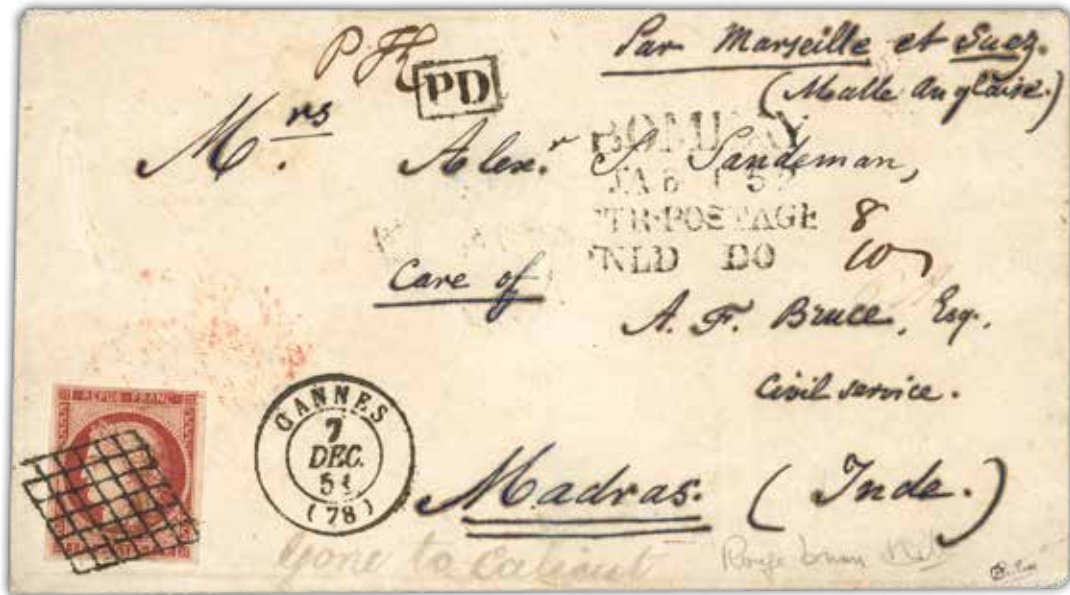 Par Marseille et Suez.
(Malle Anglaise.)
PD
Mrs. Alexr S. Sandeman,
BOMBAY
JA 5
POSTAGE 8
NLD DO 10
Care of
A. F. Bruce, Esq.,
Civil service.
Madras. (Inde.)
REPUB FRANC
CANNES
7
DEC.
51
(78)
Gone to Calicut
Rouge brun